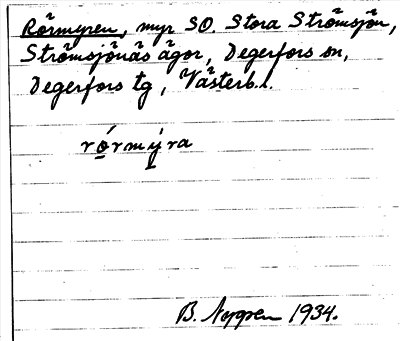 Rörmyren, myr SO. Stora Strömsjön,
Strömsjönäs ägor, Degerfors sn,
Degerfors tg, Västerb. l.
rö́rmý̱ra
B. Nygren 1934.